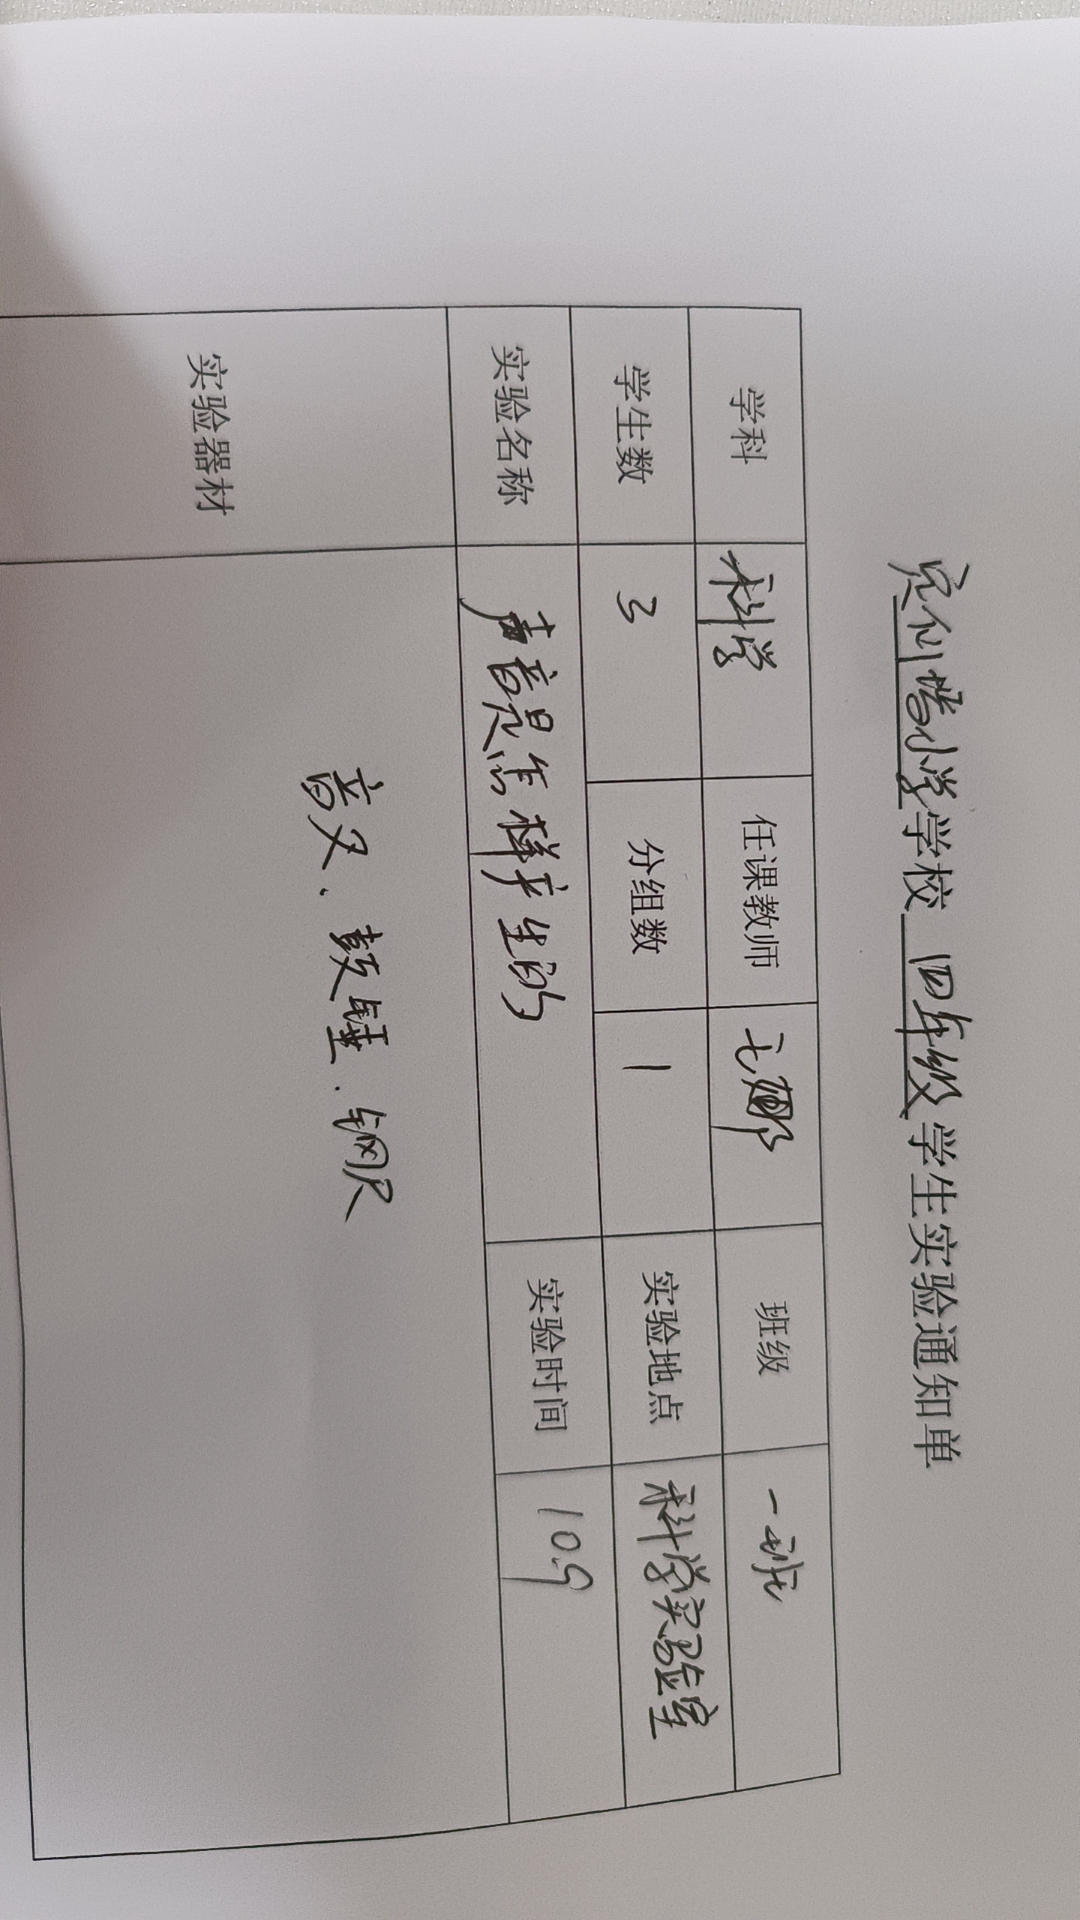 小学学校 四年级学生实验通知单
学科 科学 任课教师 娜 班级 一班
学生数 3 分组数 1 实验地点 科学实验室
实验名称 声音是怎样产生的 实验时间 10.9
实验器材 音叉、鼓锤、钢尺